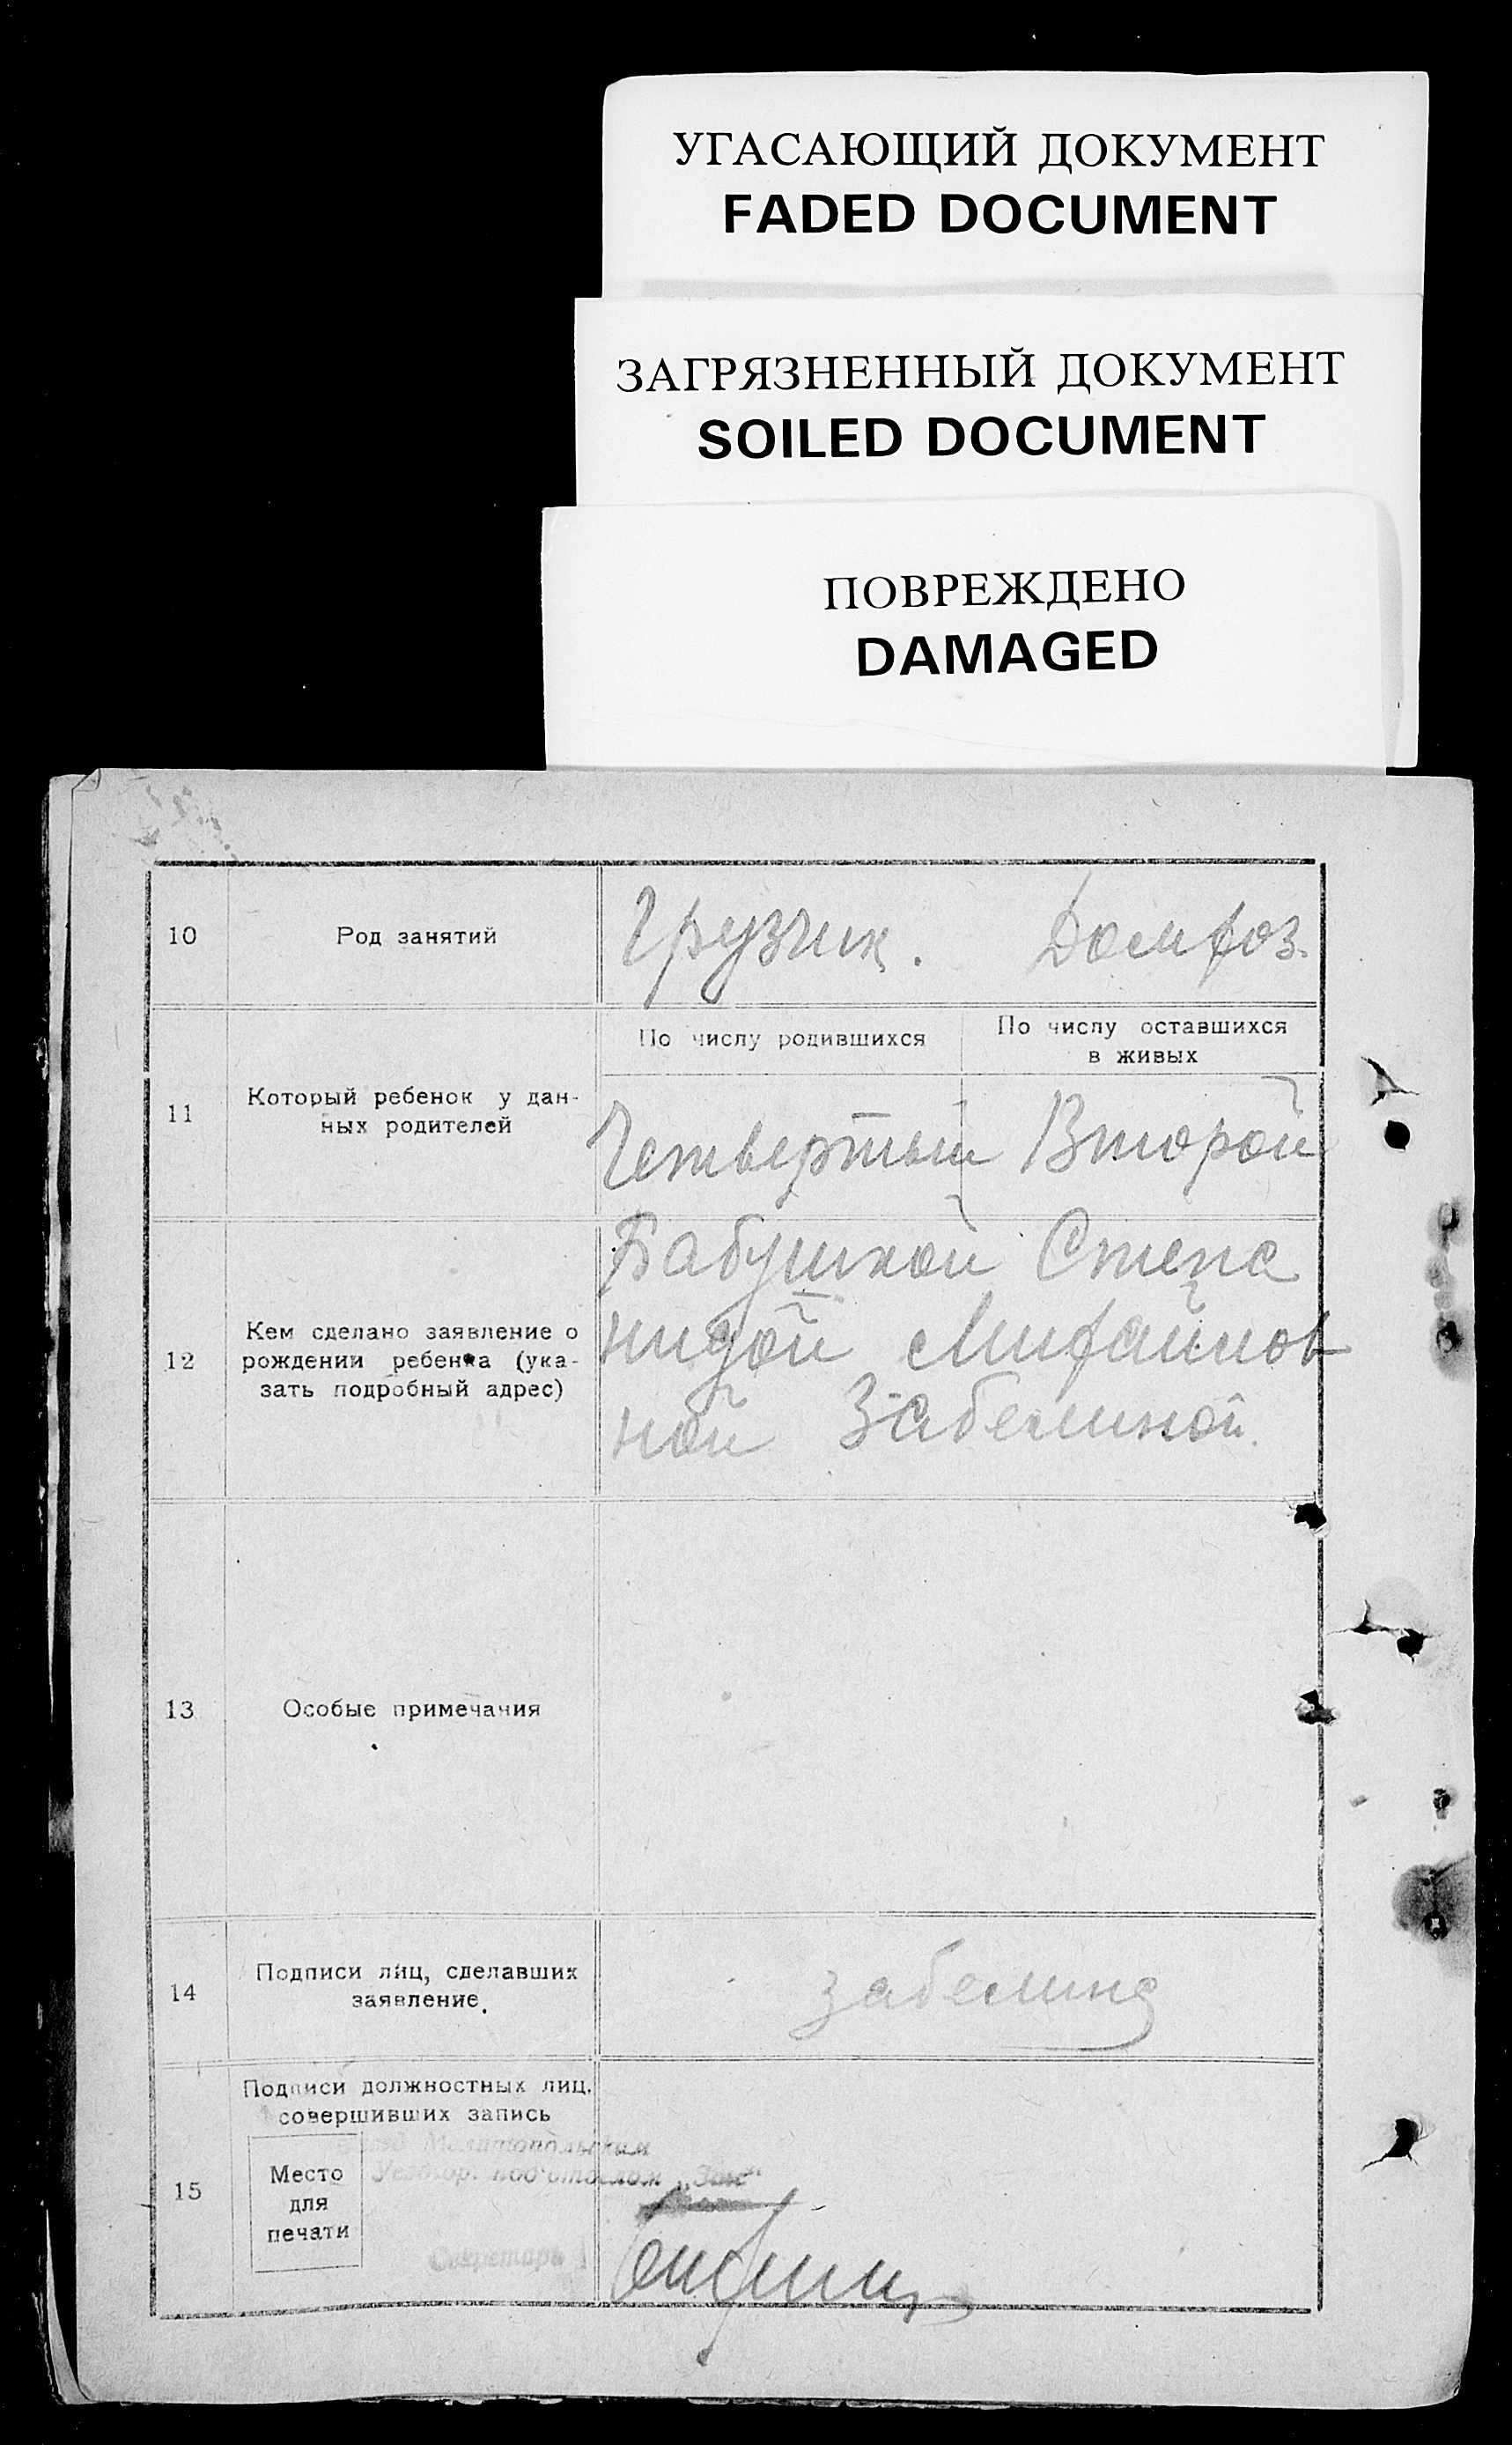 УГАСАЮЩИЙ ДОКУМЕНТ
FADED DOCUMENT
ЗАГРЯЗНЕННЫЙ ДОКУМЕНТ
SOILED DOCUMENT
ПОВРЕЖДЕНО
DAMAGED
10 Род занятий Грузчик. Домхоз.
По числу родившихся По числу оставшихся
в живых
11 Который ребенок у дан-
ных родителей
Четвертый Второй
12 Кем сделано заявление о
рождении ребенка (ука-
зать подробный адрес)
Бабушкой Степа
нидой Михайлов
ной Забелиной.
13 Особые примечания
14 Подписи лиц, сделавших
заявление.
Забелина
15 Подписи должностных лиц,
совершивших запись
Место
для
печати
Мелитопольским
подотделом „Загс“
Секретарь